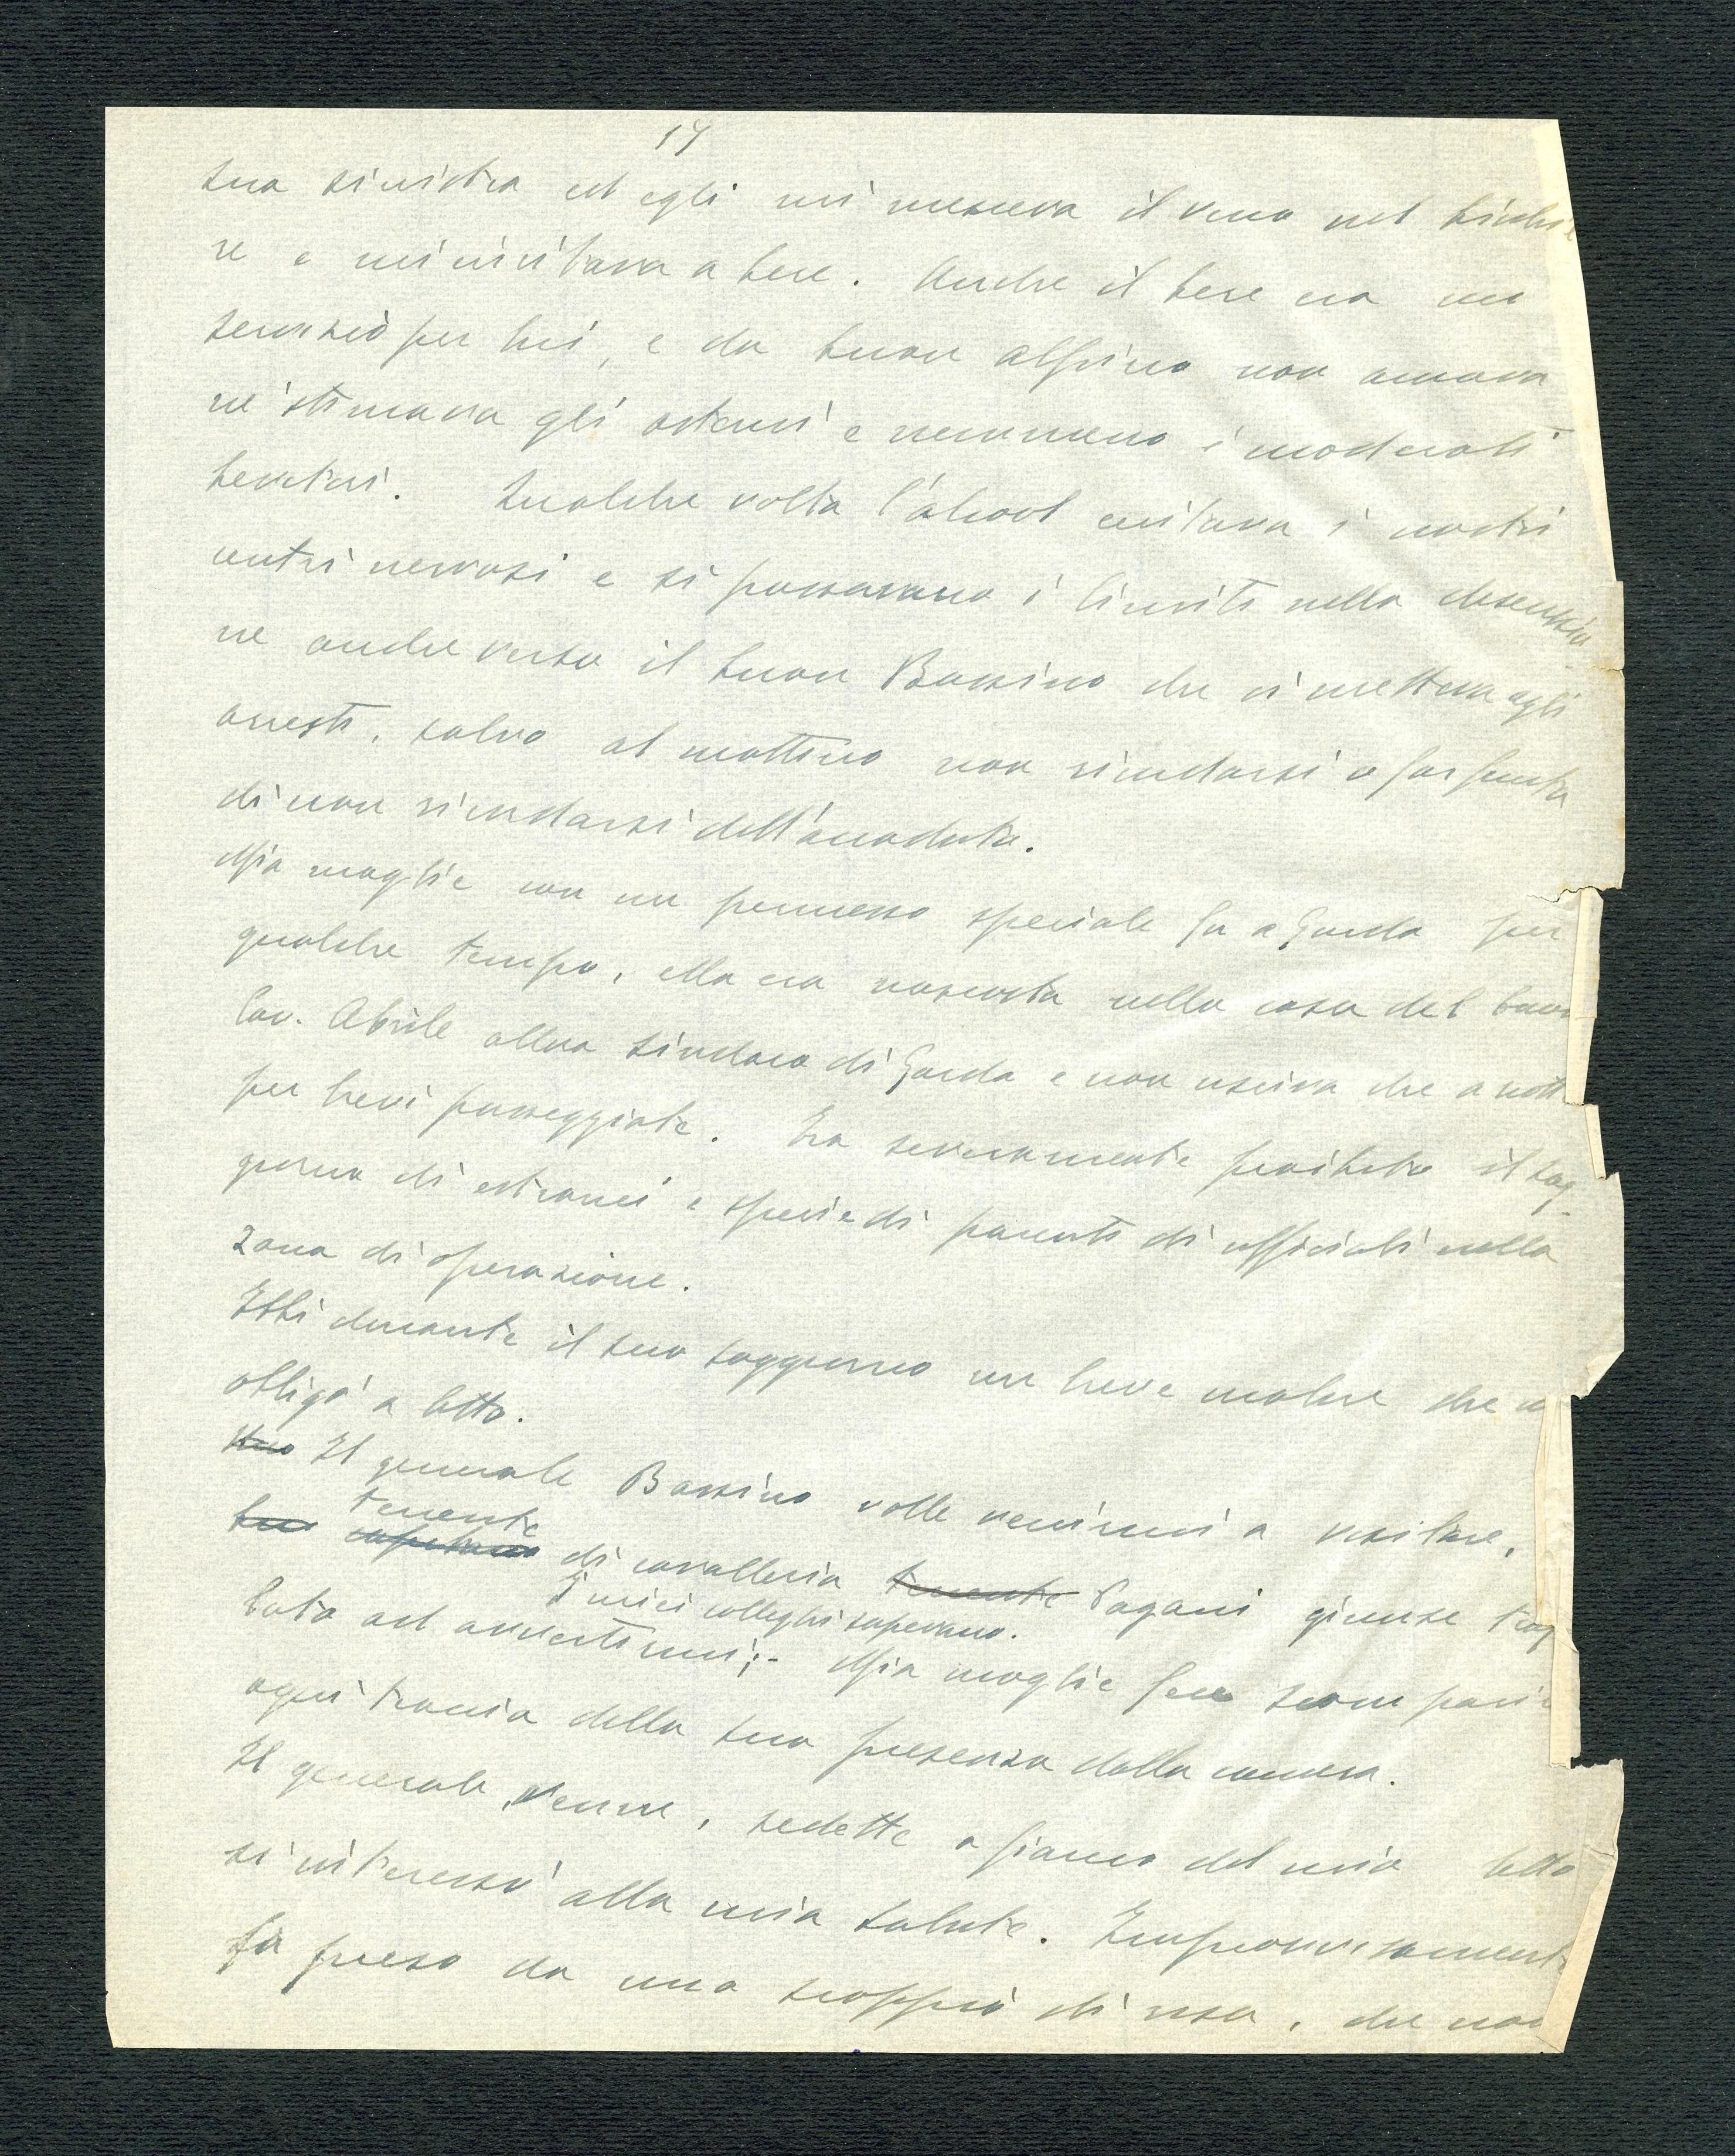 17
sua sinistra ed egli mi mesceva il vino nel bicchie
re e mi invitava a bere. Anche il bere era un
servizio per lui, e da buon alpino non amava
nè stimava gli astemi e nemmeno i moderati
bevitori. Qualche volta l'alcool eccitava i nostri
centri nervosi e si passavano i limiti nella discussio
ne anche verso il buon Bassino che ci metteva agli
arresti, salvo al mattino non ricordarsi o far finta
di non ricordarsi dell'accaduto.
Mia moglie con un permesso speciale fu a Garda per
qualche tempo, ella era nascosta nella casa del buon
Cav. Abrile allora sindaco di Garda e non usciva che a nott
per brevi passeggiate. Era severamente proibito il sog-
giorno di estranei e specie di parenti di ufficiali nella
zona di operazione.
Ebbi durante il suo soggiorno un breve malore che m
obligò a letto.
Il generale Bassino volle venirmi a visitare,
tenente
capitano di cavalleria tenente Pagani giunse trafe
I miei colleghi sapevano.
lato ad avvertirmi;- Mia moglie fece scomparir
ogni traccia della sua presenza dalla camera.
Il generale venne, sedette a fianco del mio letto
si interessò alla mia salute. Improvvisament
fu preso da uno scoppio di risa, che non